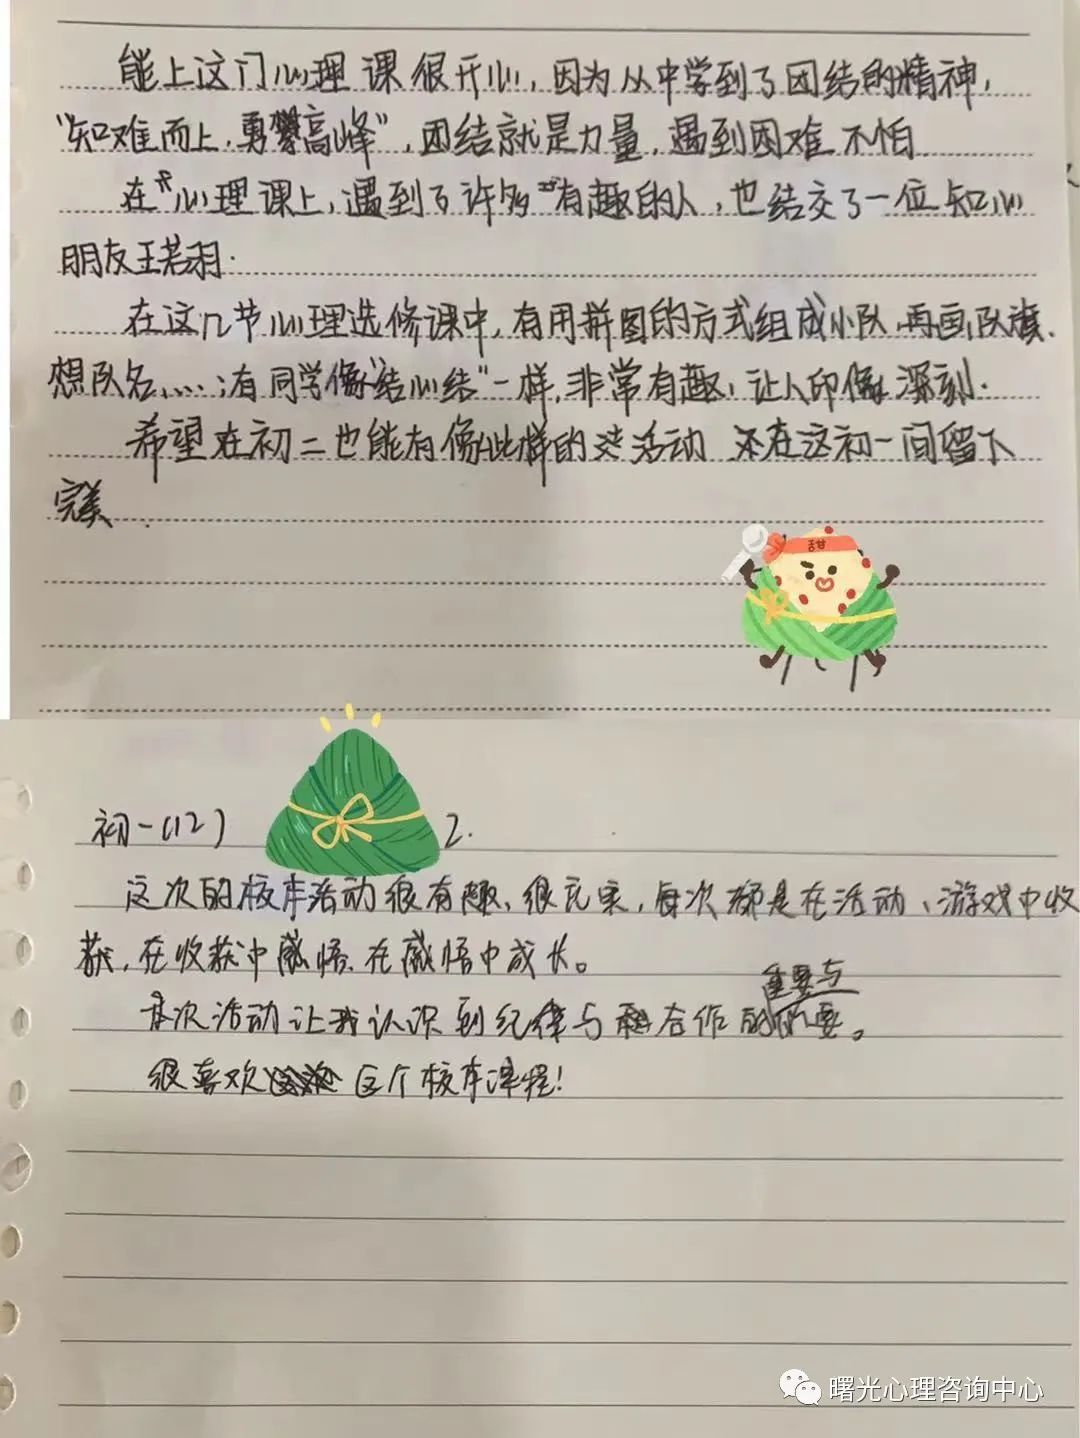 能上这门心理课很开心，因为从中学到了团结的精神，
“知难而上，勇攀高峰”，团结就是力量，遇到困难不怕
在心理课上，遇到了许多有趣的人，也结交了一位知心
朋友王若羽.
在这几节心理选修课中，有用拼图的方式组成小队，再画队旗、
想队名……；有同学像“结心结”一样，非常有趣，让人印像深刻.
希望在初二也能有像此样的活动 还在这初一间留下
完美
甜
初一(12) 2.
这次的校本活动很有趣、很充实，每次都是在活动、游戏中收
获，在收获中感悟、在感悟中成长。
重要与
本次活动让我认识到纪律与合作的必要。
很喜欢这个校本课程！
曙光心理咨询中心